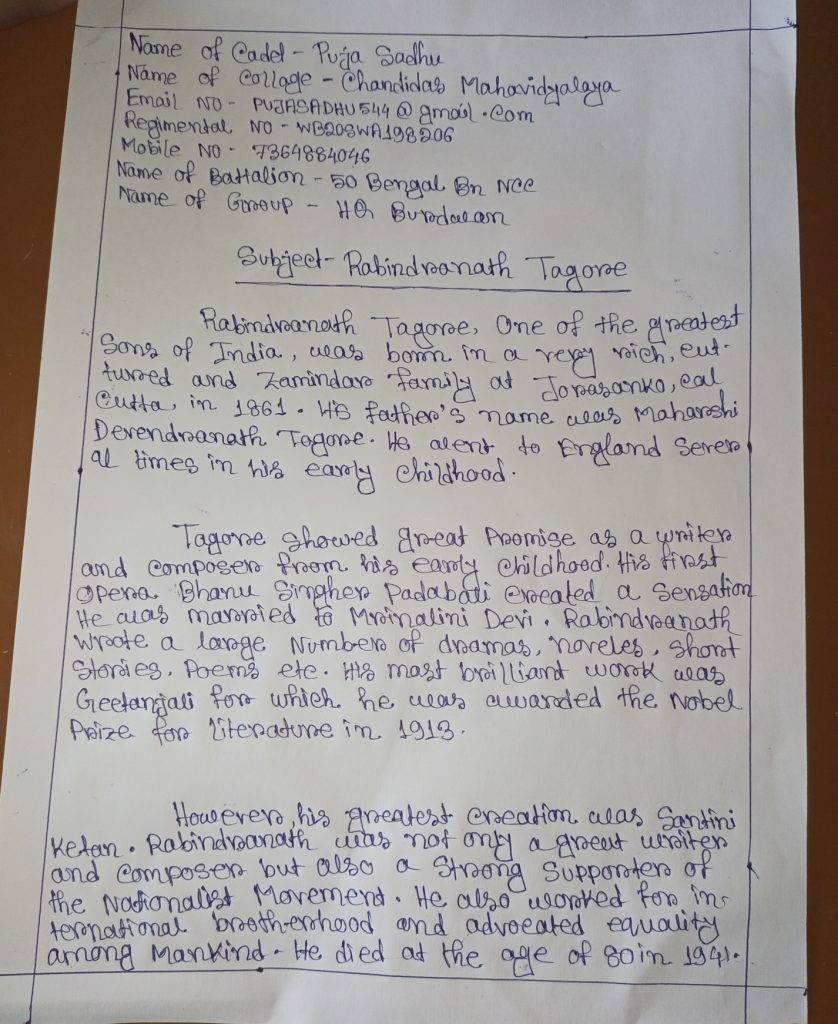 Name of Cadet - Puja Sadhu
Name of Collage - Chandidas Mahavidyalaya
Email NO - PUJASADHU544@gmail.com
Regimental NO - WB20SWA198206
Mobile NO - 7364884046
Name of Battalion - 50 Bengal Bn NCC
Name of Group - HQ Burdwan
Subject - Rabindranath Tagore
Rabindranath Tagore, One of the greatest
Sons of India, was born in a very rich, cul-
tured and Zamindar family at Jorasanko, cal
Cutta, in 1861. His father's name was Maharshi
Devendranath Tagore. He went to England Sever
al times in his early childhood.
Tagore showed great Promise as a writer
and composer from his early childhood. His first
opera Bhanu Singher Padabali created a Sensation
He was married to Mrinalini Devi. Rabindranath
Wrote a large Number of dramas, noveles, short
Stories, Poems etc. His most brilliant work was
Geetanjali for which he was awarded the Nobel
Prize for literature in 1913.
However, his greatest creation was Santini
Ketan. Rabindranath was not only a great writer
and composer but also a Strong Supporter of
the Nationalist Movement. He also worked for in-
ternational brotherhood and advocated equality
among Mankind. He died at the age of 80 in 1941.